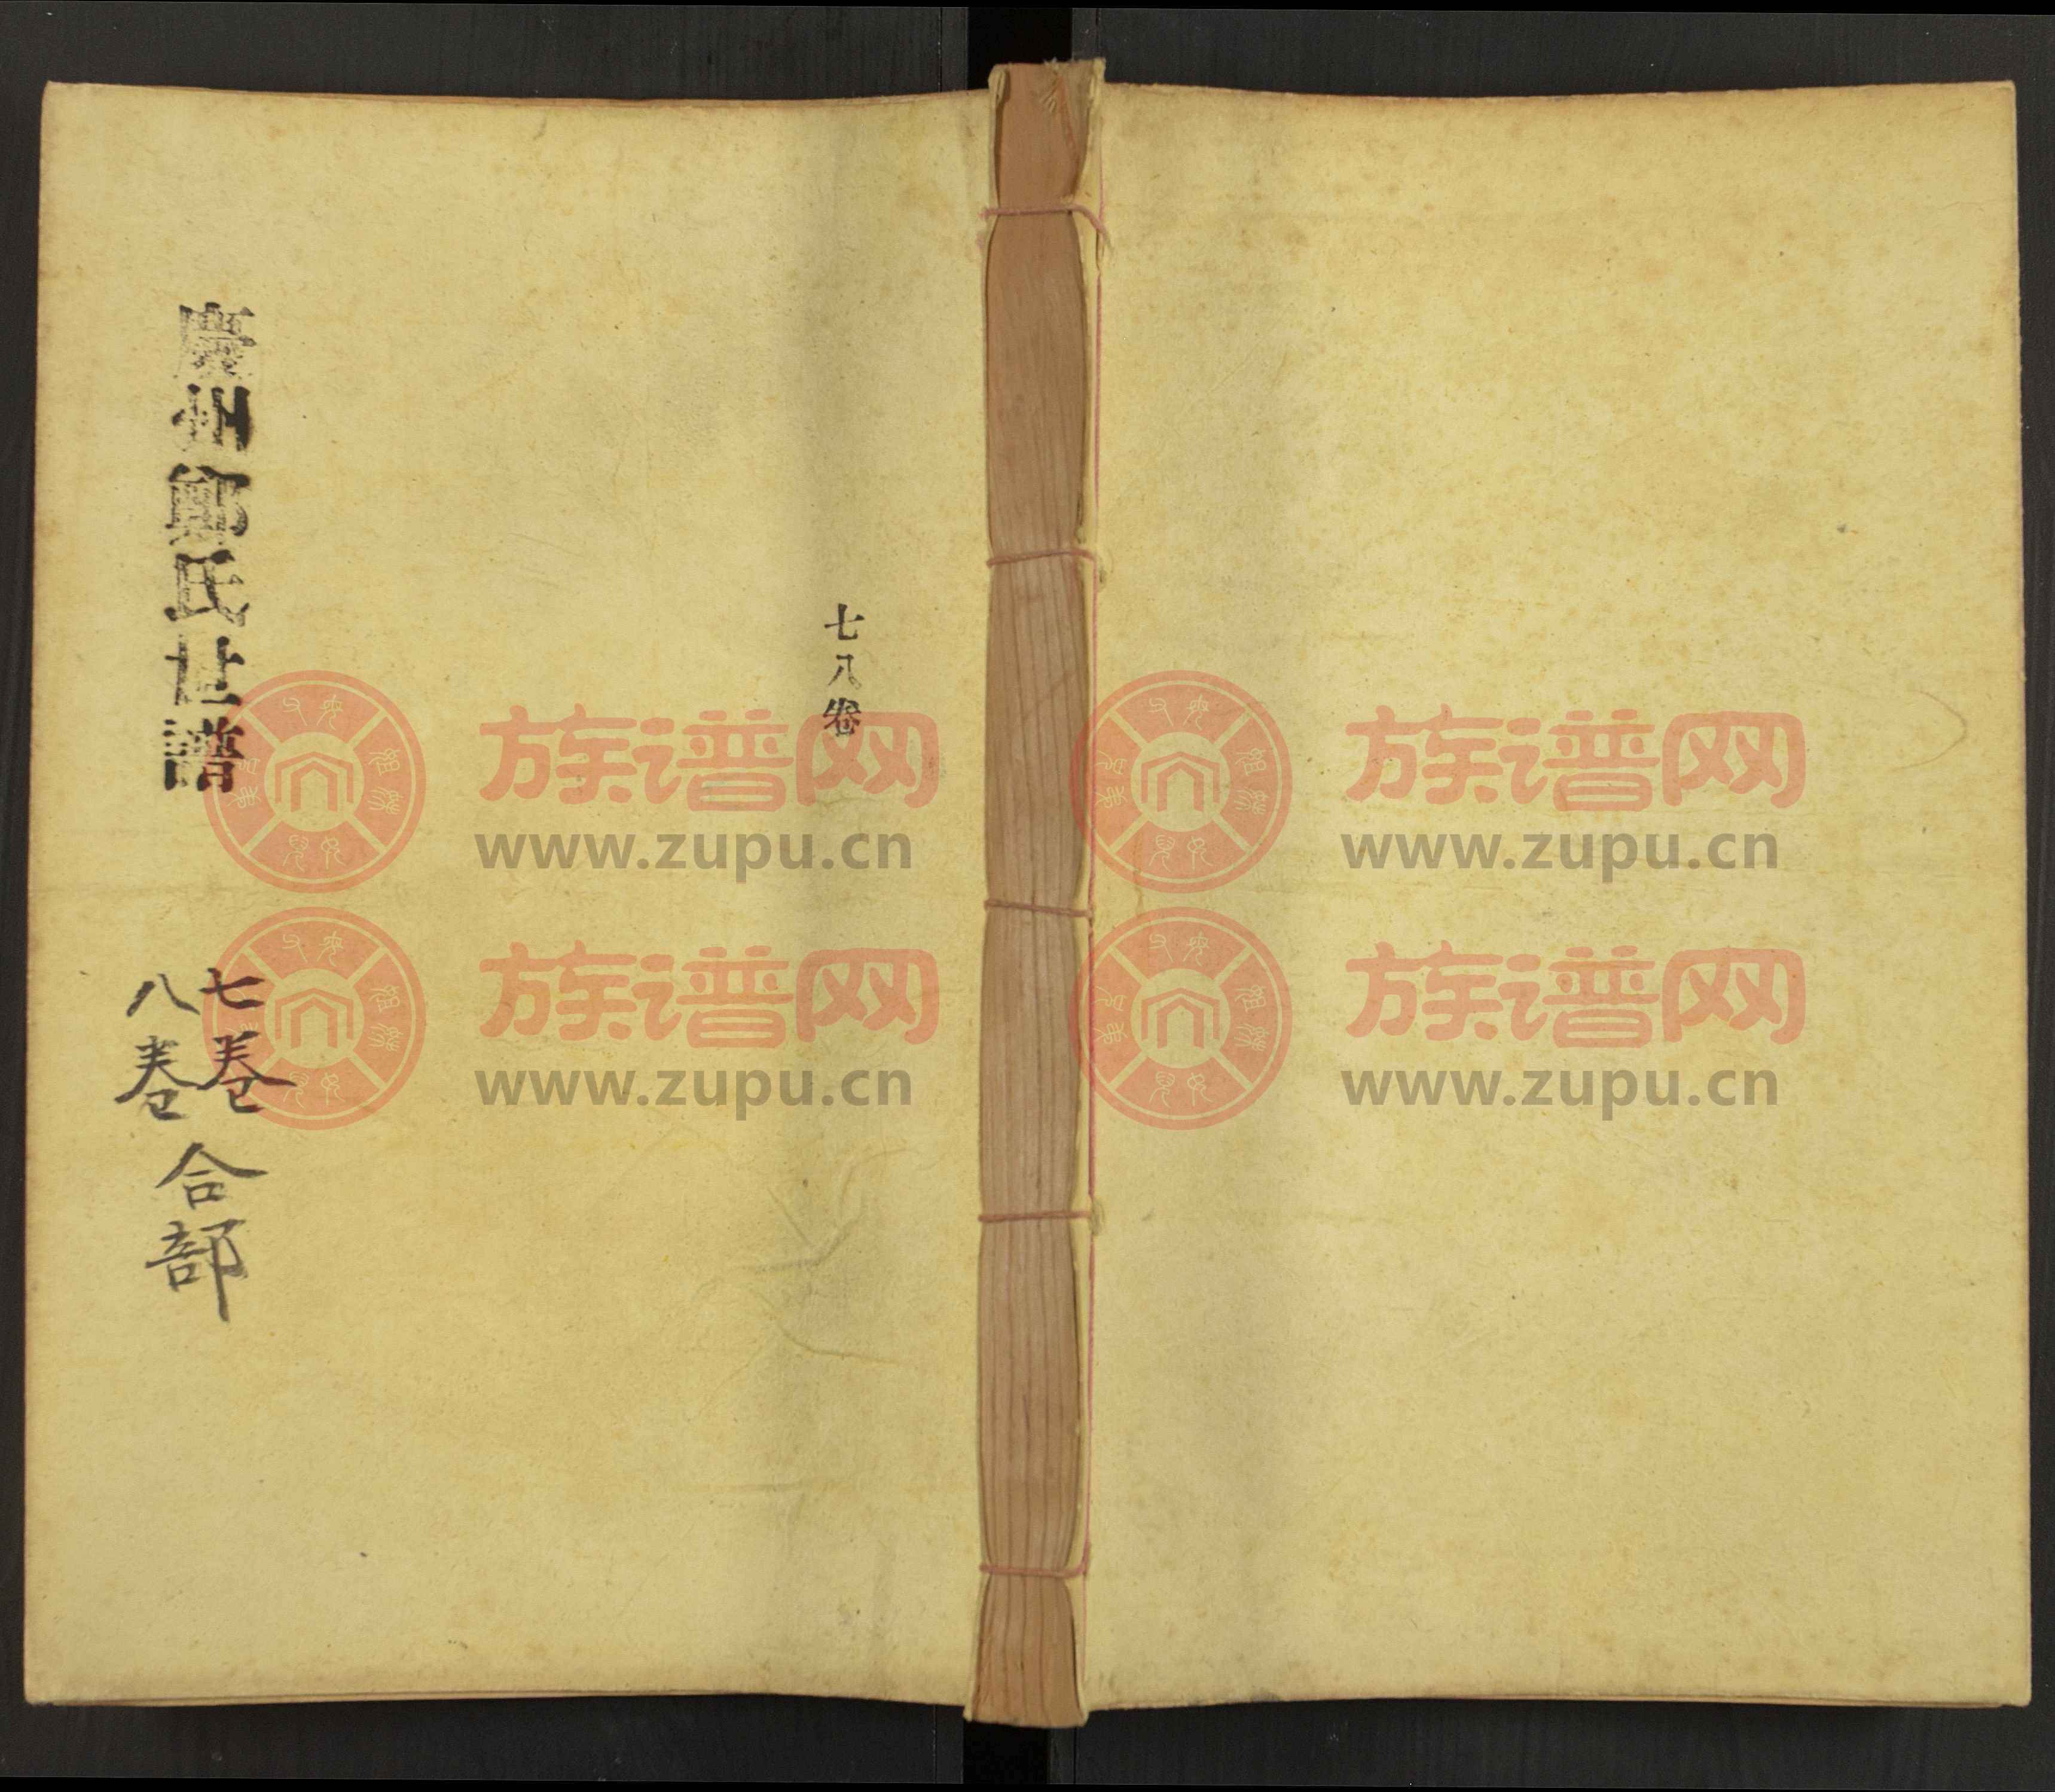 七八卷
慶州鄭氏世譜
七卷
八卷
合部
族谱网
www.zupu.cn
族谱网
www.zupu.cn
族谱网
www.zupu.cn
族谱网
www.zupu.cn